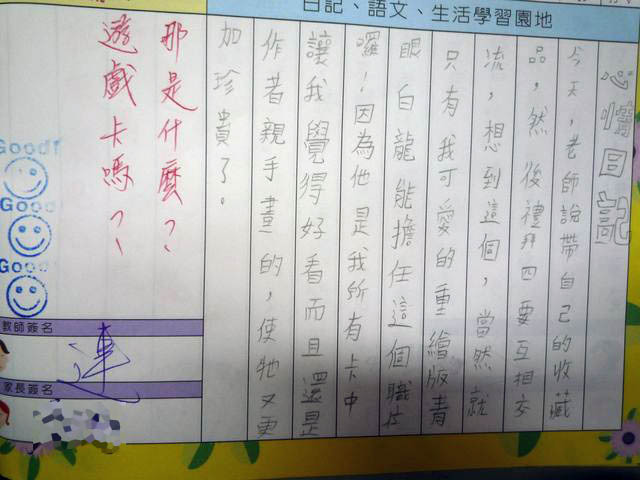 日記、語文、生活學習園地
心情日記
今天,老師說帶自己的收藏
品,然後禮拜四要互相交
流,想到這個,當然就
只有我可愛的重繪版青
眼白龍能擔任這個職位
囉!因為他是我所有卡中
讓我覺得好看而且還是
作者親手畫的,使牠又更
加珍貴了。
那是什麼?
遊戲卡嗎?
Good!
Good!
Good!
教師簽名
連
家長簽名